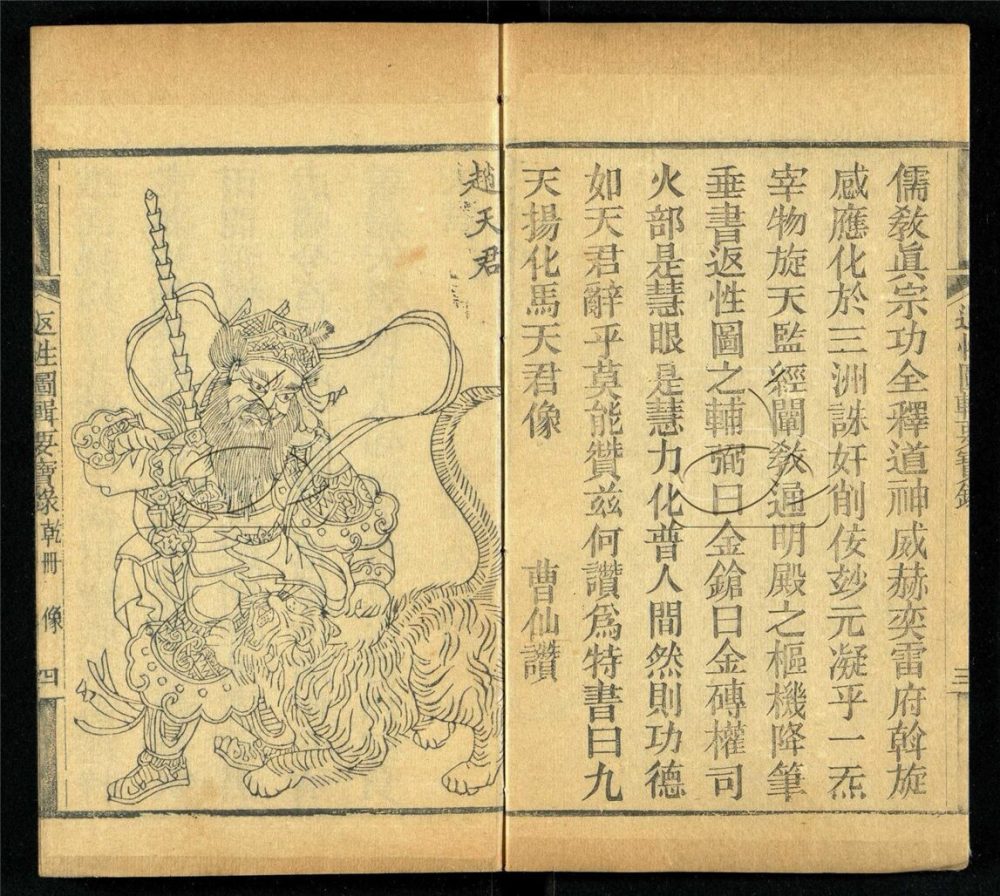 儒教眞宗功全釋道神威赫奕雷府斡旋
感應化於三洲誅奸削佞玅元凝乎一炁
宰物旋天監經闡教通明殿之樞機降筆
垂書返性圖之輔弼曰金鎗曰金磚權司
火部是慧眼是慧力化普人間然則功德
如天君辭乎莫能贊兹何讚爲特書曰九
天揚化馬天君像
曹仙讚
三
趙天君
返性圖輯要寶錄 乾冊 像 四